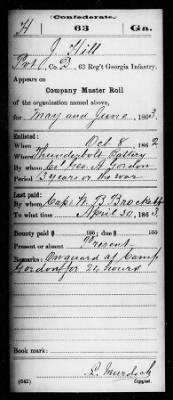 Confederate.
H 63 Ga.
J. Hill
Pvt, Co. D, 63 Reg't Georgia Infantry.
Appears on
Company Muster Roll
of the organization named above,
for May and June, 1863.
Enlisted:
When Oct 8, 1862
Where Thunderbolt Battery
By whom Col. Geo. A. Gordon
Period 3 years or the war
Last paid:
By whom Capt. W. B. Brockett
To what time April 30, 1863.
Bounty paid $ 100; due $ 100
Present or absent Present
Remarks: On guard at Camp
Gordon for 24 hours
Book mark:
R. Murdick
(642) Copyist.